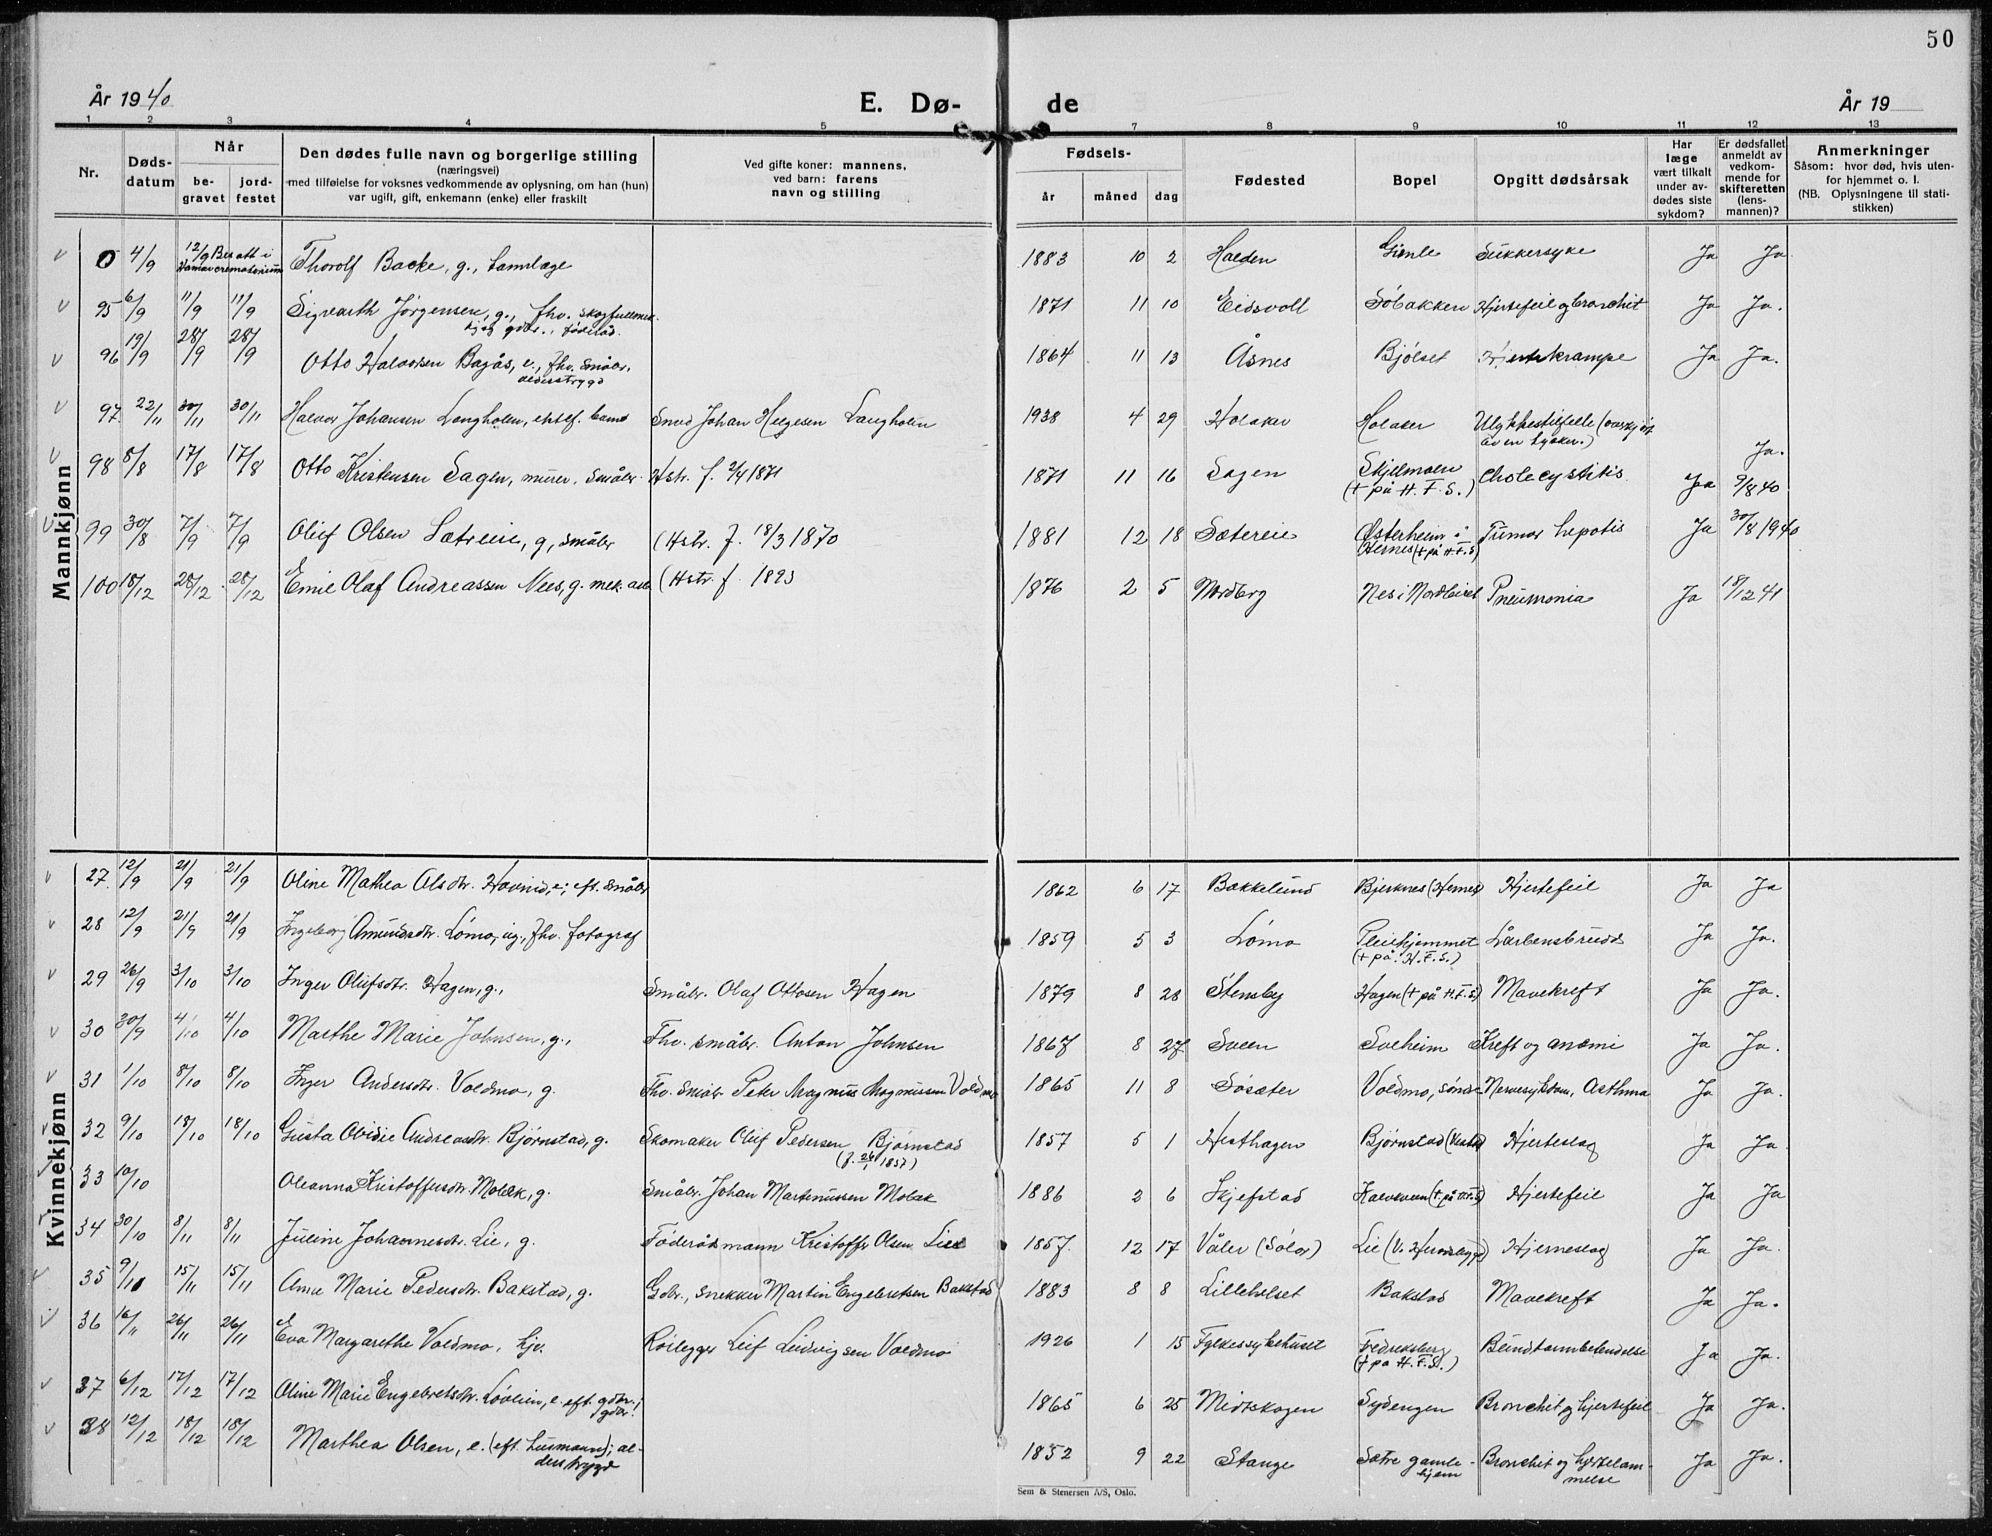 50
År 1940
E. Dø-
de
År 19
1 2 3 4 5 7 8 9 10 11 12 13
Nr.
Døds-
datum
Når
be-
gravet
jord-
festet
Den dødes fulle navn og borgerlige stilling
(næringsvei)
med tilføielse for voksnes vedkommende av oplysning, om han (hun)
var ugift, gift, enkemann (enke) eller fraskilt
Ved gifte koner: mannens,
ved barn: farens
navn og stilling
Fødsels-
år måned dag
Fødested
Bopel
Opgitt dødsårsak
Har
læge
vært tilkalt
under av-
dødes siste
sykdom?
Er dødsfallet
anmeldt av
vedkom-
mende for
skifteretten
(lens-
mannen)?
Anmerkninger
Såsom: hvor død, hvis uten-
for hjemmet o. l.
(NB. Oplysningene til stati-
stikken)
Mannkjønn
0 4/9 12/9 Thorolf Backe, g., 1883 10 2 Halden Sukkersyke Ja Ja
95 6/9 11/9 11/9 Sigvarth Jørgensen, g., fhv. 1871 11 10 Eidsvoll Søbakken Hjertefeil og bronchit Ja Ja.
96 19/9 28/9 28/9 Otto Halvorsen Bagås, e., fhv. småbr., 1864 11 13 Åsnes Bjølset Hjertekrampe Ja Ja.
alderstrygd
97. 22/11 30/11 30/11 Halvor Johansen Langholen, ektef. barn Smed Johan Helgesen Langholen 1938 4 29 Holaker Holaker Ulykkestilfelle (overkjørt
av en
Ja.
98 8/8 17/8 17/8 Otto Kristensen Sagen, murer, småbr. Hstr. f. 2/4 1871 1871 11 16 Sagen Skjellmoen Cholecystitis Ja 9/8 40
(+ på H.F.S.)
99 30/8 7/9 7/9 Oluf Olsen Sætreie, g, småbr (Hstr. f. 18/3 1870 1881 12 18 Sætereie Østerheim i Tumor hepatis Ja 30/8 1940
Hernes (+ på H.F.S)
100 18/12 28/12 28/12 Emil Olaf Andreassen Nees, g. mek. arb (Hstr. f. 1893 1876 2 5 Nordberg Nes i Nordleiret Pneumonia Ja 18/12 41
Kvinnekjønn
27. 12/9 21/9 21/9 Oline Mathea Olsdtr. e; eft. småbr 1862 6 17 Bakkelund Bjerknes (Hernes) Hjertefeil Ja Ja
28 12/9 21/9 21/9 Ingeborg Amundsdtr. Lømo, ug., fhv. fotograf 1859 5 3 Lømo Pleiehjemmet Lårbensbrudd Ja Ja.
(+ på. H.F.S.)
29 26/9 3/10 3/10 Inger Olufsdtr. Hagen, g., Småbr. Olaf Ottosen Hagen 1879 8 28 Stensby Hagen (+ på H.F.S) Mavekreft Ja Ja.
30 30/9 4/10 4/10 Marthe Marie Johnsen, g., Fhv. småbr. Anton Johnsen 1867 8 27 Sveen Solheim Kreft og anæmi Ja Ja.
31 1/10 8/10 8/10 Inger Andersdtr. Voldmo, g. Fhv. småbr Peter Magnus Magnussen Voldmo 1865 11 8 Søsæter Voldmo, søndre Nervesykdom, Asthma Ja Ja.
32 9/10 18/10 18/10 Gusta Ovidie Andreasdtr. Bjørnstad, g. Skomaker Oluf Pedersen Bjørnstad 1857 5 1 Hesthagen Bjørnstad Hjerteslag Ja Ja
(f. 26/1 1857)
33 10/10 Oleanna Kristoffersdtr. Mobæk, g. Småbr. Johan Martinussen Mobæk 1886 2 6 Skjefstad (+ på H.F.S) Hjertefeil Ja Ja
34 30/10 8/11 8/11 Juline Johannesdtr. Lie, g. Føderådsmann Kristoffer Olsen Lie 1857. 12 17 Våler (Solør) Lie Hjerneslag Ja Ja.
35 9/11 15/11 15/11 Anne Marie Pedersdtr. Bakstad, g. Gbr., snekker Martin Engebretsen Bakstad 1883 8 8 Lillehelset Bakstad Mavekreft Ja Ja.
36 16/11 26/11 26/11 Eva Margarethe Voldmo, hjv. Rørlegger Leif Ludvigsen Voldmo 1926 1 15 Fylkessykehuset Fredriksberg Blindtarmbetendelse Ja Ja.
(+ på H.F.S.)
37 6/12 17/12 17/12 Oline Marie Engebretsdtr. Løvlien, e. eft. gdbr.; 1865 6 25 Midtskogen Sydengen Bronchit og hjertefeil Ja Ja.
38 12/12 18/12 18/12 Marthea Olsen, e. (eft. husmann); al- 1852 9 22 Stange Sætre gamle- Bronchit og hjertelam- Ja Ja.
derstrygd hjem melse
Sem & Stenersen A/S, Oslo.